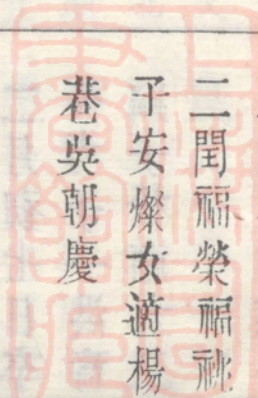 二閏福榮福
子安燦女適楊
巷吳朝慶